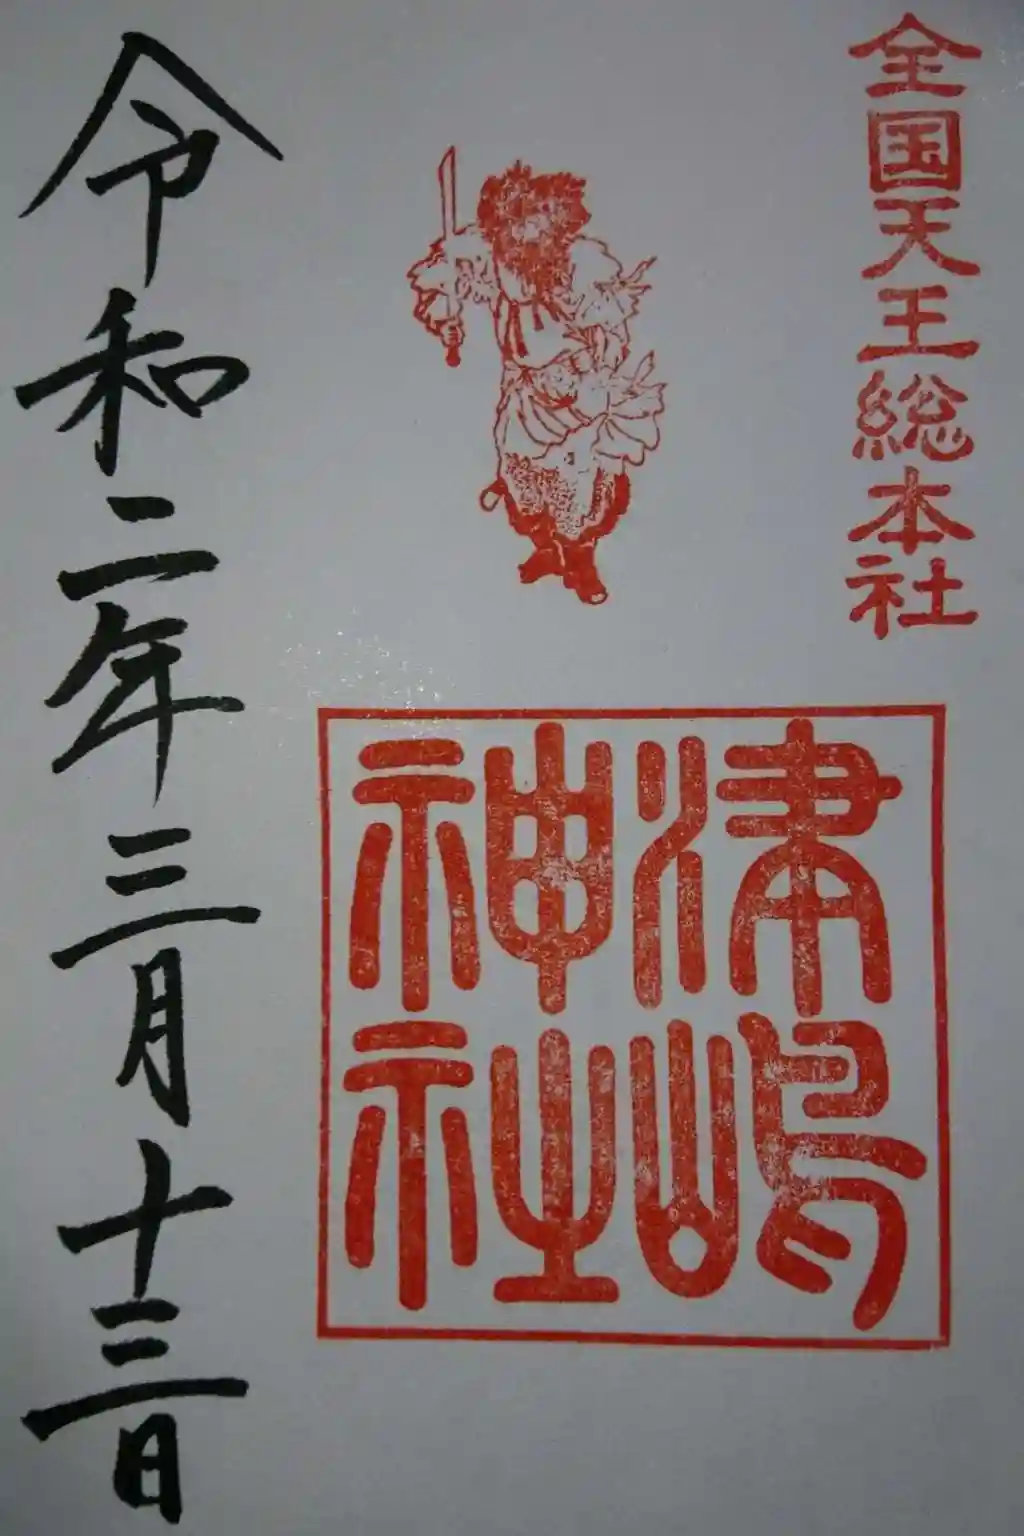 全国天王総本社
津嶋神社
令和二年三月十三日